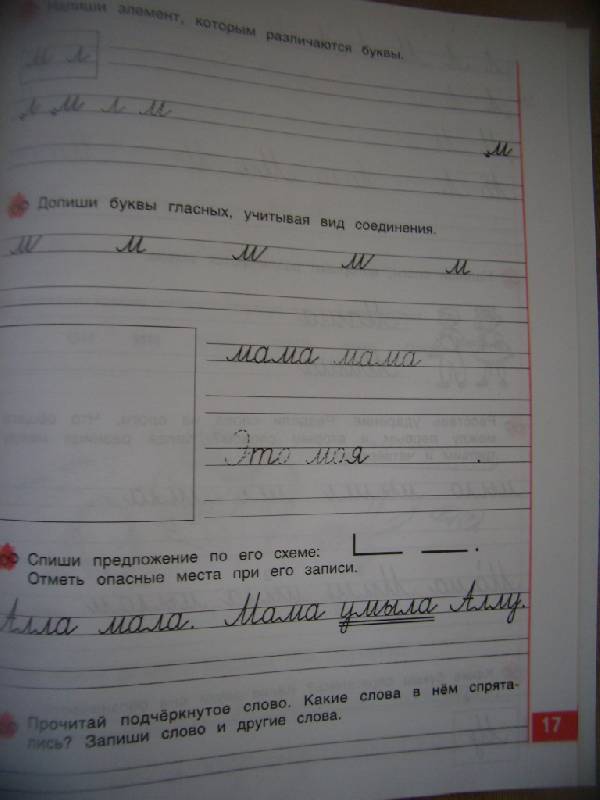 Напиши элемент, которым различаются буквы.
м л
л м л м
м
Допиши буквы гласных, учитывая вид соединения.
м м м м м
мама мама
Это моя .
Спиши предложение по его схеме:
Отметь опасные места при его записи.
Алла мала. Мама умыла Аллу.
Прочитай подчёркнутое слово. Какие слова в нём спрята-
лись? Запиши слово и другие слова.
17